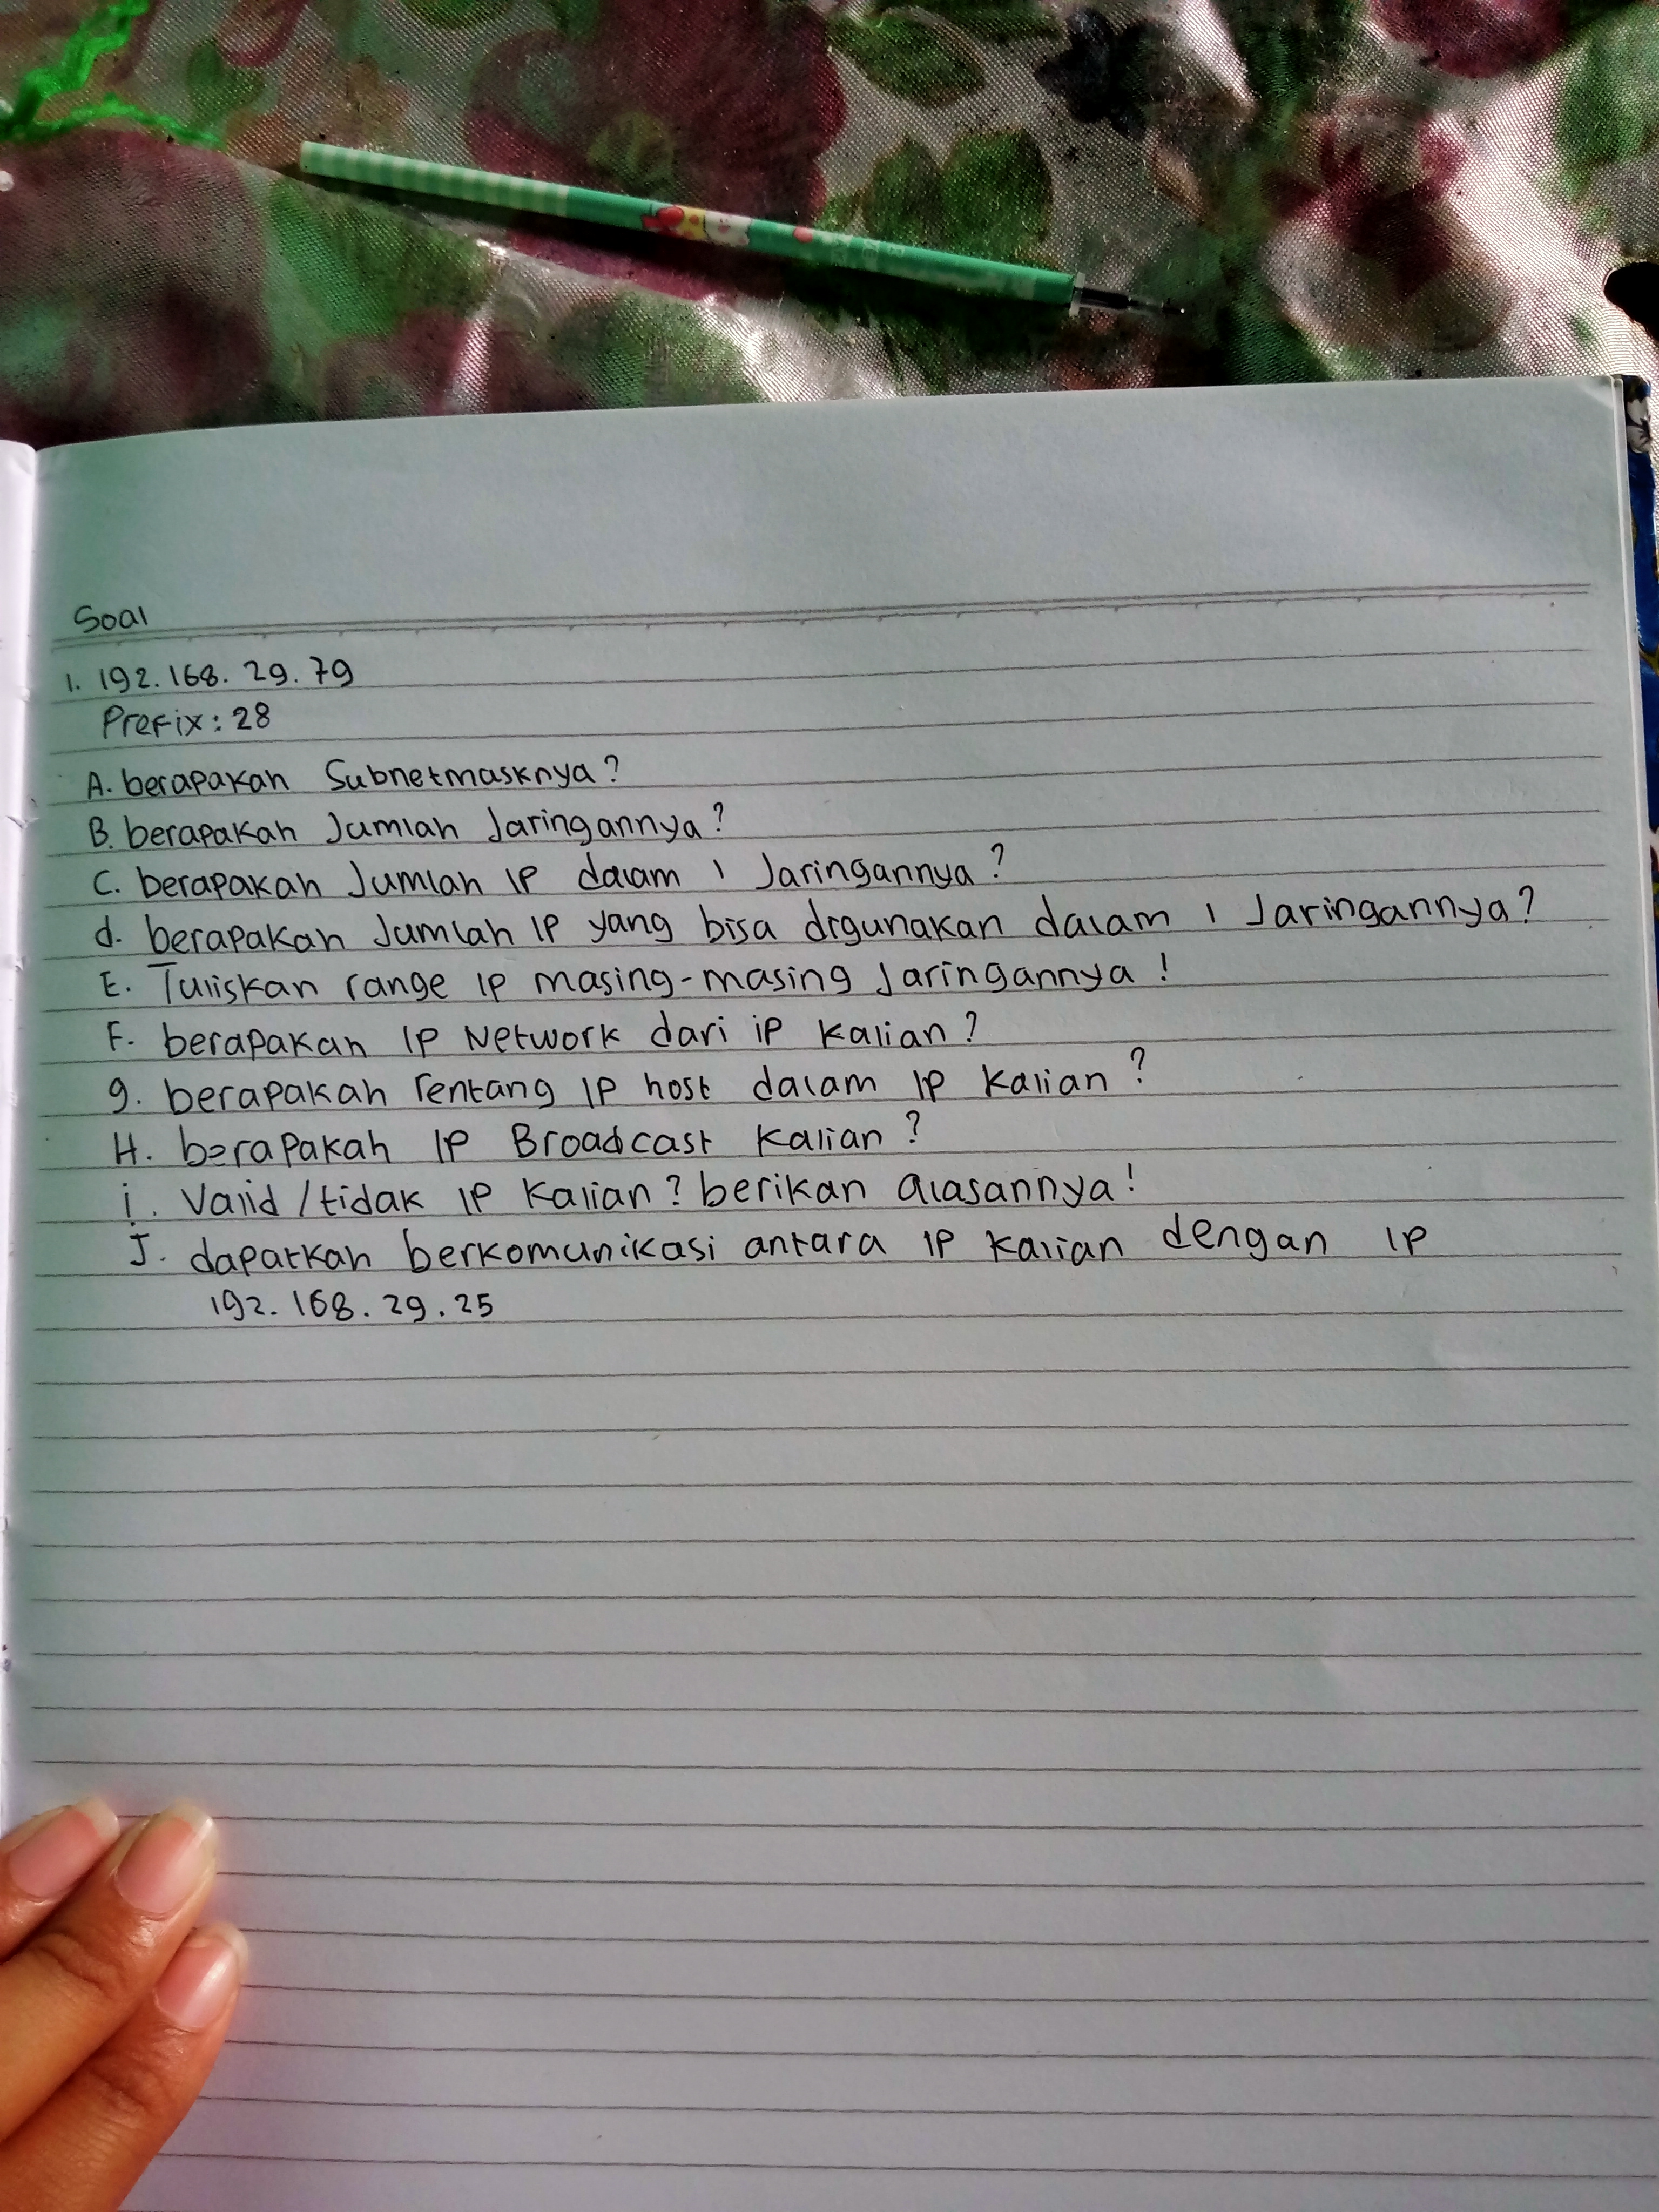 Soal
1. 192.168. 29.79
Prefix: 28
A. berapakah Subnetmasknya?
B. berapakah Jumlah Jaringannya?
C. berapakah Jumlah IP dalam 1 Jaringannya?
d. berapakah Jumlah IP yang bisa digunakan dalam 1 Jaringannya?
E. Tuliskan range IP masing-masing Jaringannya!
F. berapakah IP Network dari iP Kalian?
g. berapakah rentang IP host dalam IP Kalian?
H. berapakah IP Broadcast Kalian?
i. Valid/tidak IP Kalian? berikan alasannya!
J. dapatkah berkomunikasi antara IP Kalian dengan IP
192.168.29.25